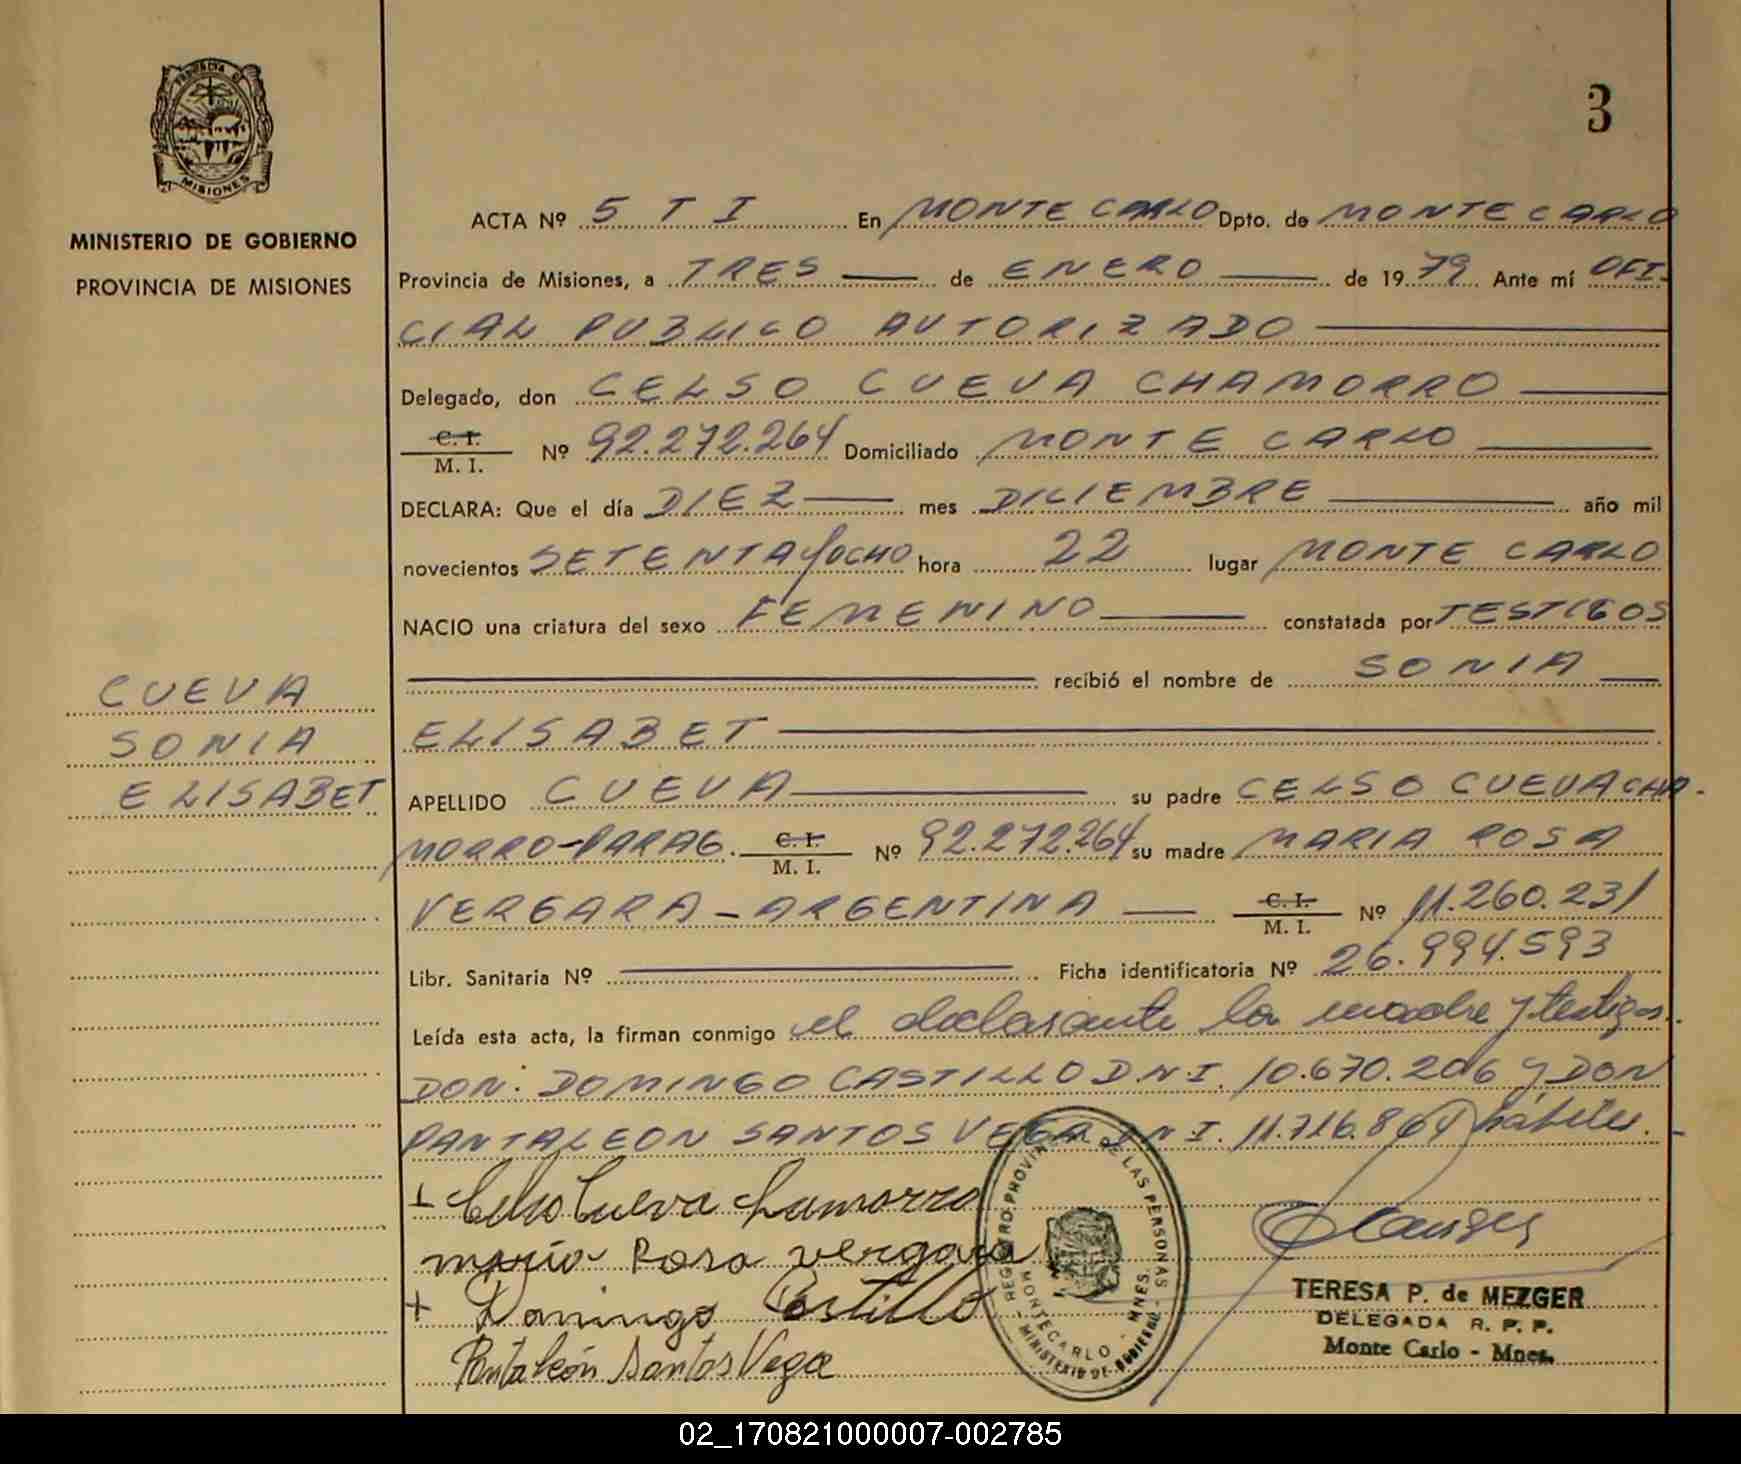 3
PROVINCIA DE
MISIONES
MINISTERIO DE GOBIERNO
PROVINCIA DE MISIONES
ACTA Nº 5 T I En MONTE CARLO Dpto. de MONTE CARLO
Provincia de Misiones, a TRES de ENERO de 1979 Ante mí OFI-
CIAL PUBLICO AUTORIZADO
Delegado, don CELSO CUEVA CHAMORRO
C. I.
M. I. Nº 92.272.264 Domiciliado MONTE CARLO
DECLARA: Que el día DIEZ mes DICIEMBRE año mil
novecientos SETENTA y OCHO hora 22 lugar MONTE CARLO
NACIO una criatura del sexo FEMENINO constatada por TESTIGOS
recibió el nombre de SONIA
ELISABET
CUEVA
SONIA
ELISABET
APELLIDO CUEVA su padre CELSO CUEVA CHA-
MORRO-PARAG. C. I. / M. I. Nº 92.272.264 su madre MARIA ROSA
VERGARA - ARGENTINA C. I. / M. I. Nº 11.260.231
Libr. Sanitaria Nº Ficha identificatoria Nº 26.994.593
Leída esta acta, la firman conmigo el declarante la madre y testigos.
DON: DOMINGO CASTILLO D.N.I. 10.670.206 y DON
PANTALEON SANTOS VEGA DNI. 11.716.864 hábiles.
Celso Cueva Chamorro
maria Rosa vergara
+ Domingo Castillo
Pantaleón Santos Vega
REGISTRO PROVINCIAL DE LAS PERSONAS
MONTECARLO - MNES.
MINISTERIO DE GOBIERNO
TERESA P. de MEZGER
DELEGADA R. P. P.
Monte Carlo - Mnes.
02_170821000007-002785